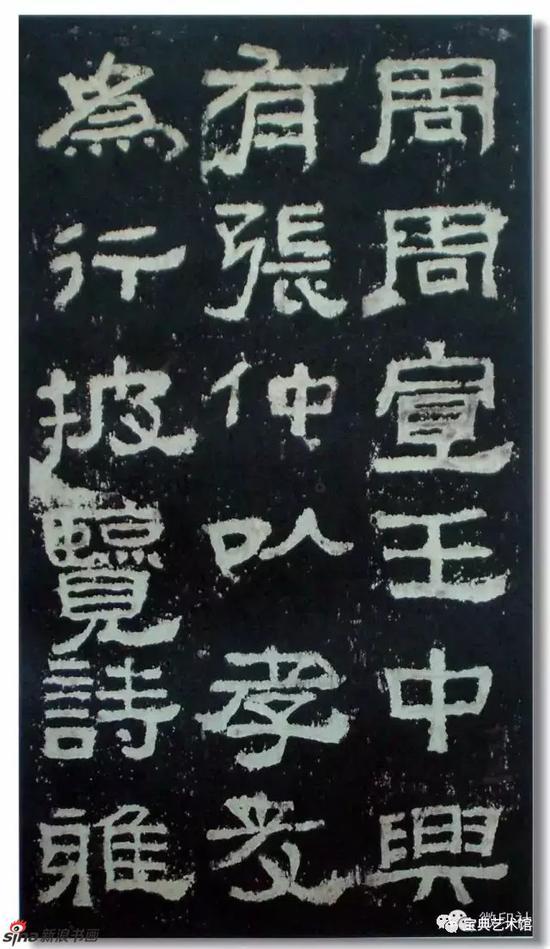 周周宣王中興
有張仲以孝友
為行披覽詩雅
sina新浪书画
宝典艺术馆